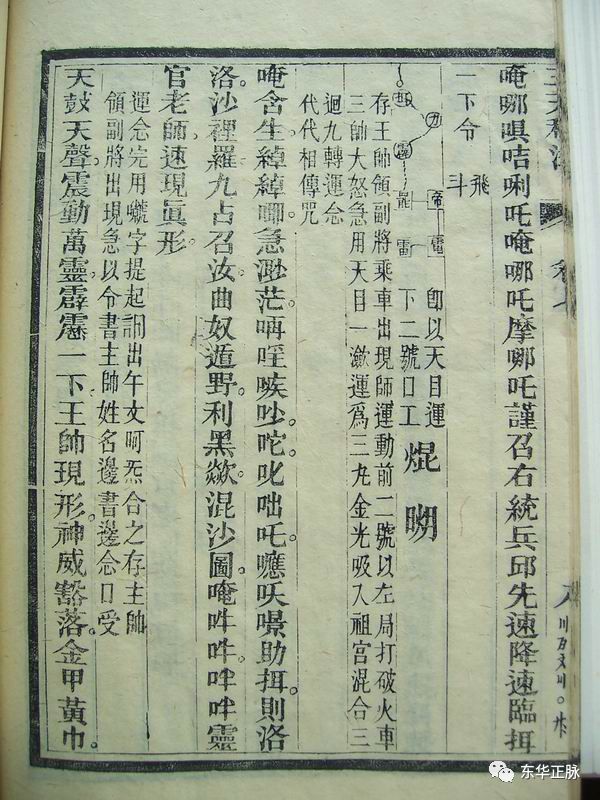 唵哪㖵咭唎吒唵哪吒摩哪吒謹召右統兵邱先速降速臨揖
一下令
飛
斗
罡
雷
帝
電
卽以天目運
下二號口工
焜
存王帥領副將乘車出現師運動前二號以左局打破火車
三帥大怒急用天目一漱運爲三九金光吸入祖宮混合三
迴九轉運念
代代相傳咒
唵含生綽綽唧急渺茫唡哐嗾吵咜叱咄吒嚒吙㬌助揖則洛
洛沙裡羅九占召汝曲奴遁野利黑歘混沙圖唵吽吽吽吽靈
官老師速現眞形
運念完用字提起詷出午文呵炁合之存主帥
領副將出現急以令書主帥姓名邊書邊念口受
天鼓天聲震動萬靈霹靂一下王帥現形神威豁落金甲黃巾
东华正脉